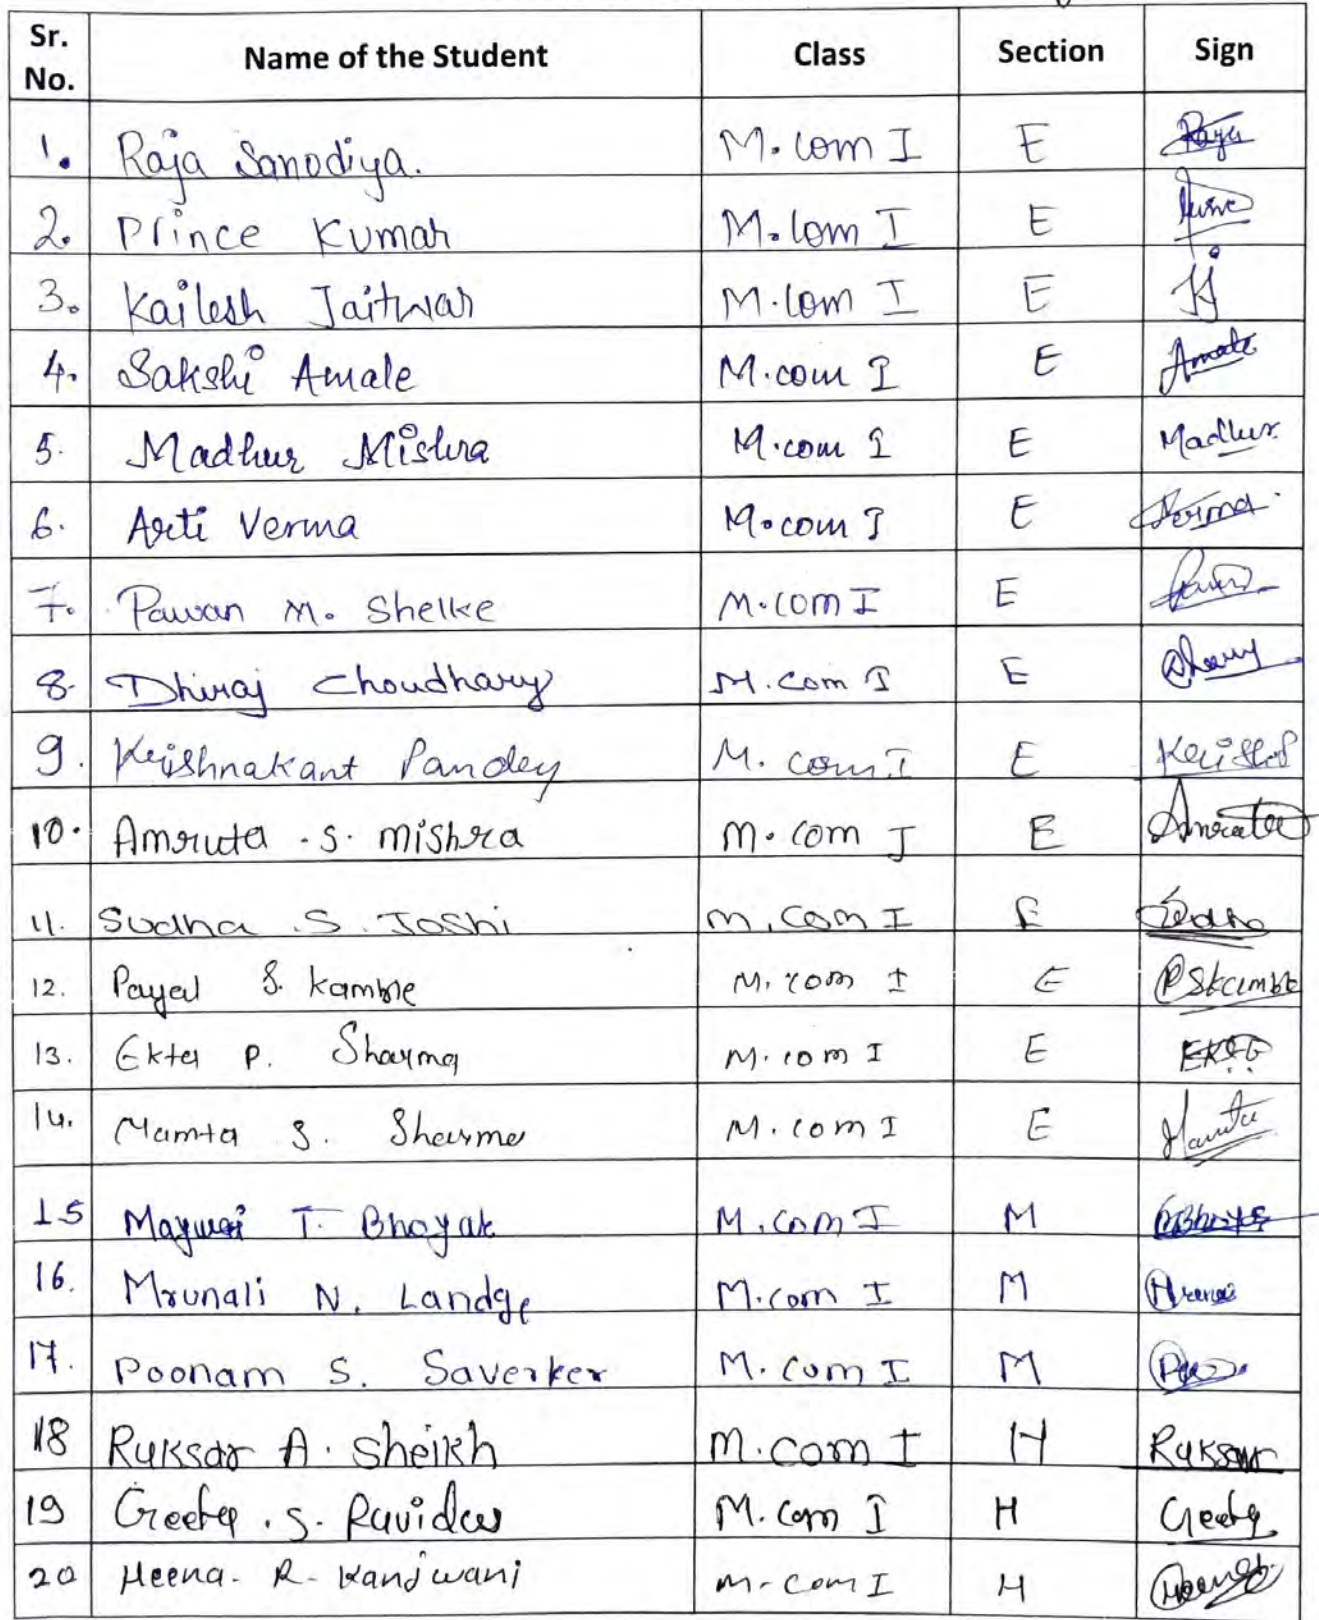 Sr. No. Name of the Student Class Section Sign
1. Raja Sanodiya. M.com I E Raja
2. Prince Kumar M.com I E
3. Kailesh Jaitwar M.com I E
4. Sakshi Amale M.com I E Amale
5. Madhur Mishra M.com I E Madhur
6. Arti Verma M.com I E Verma
7. Pawan M. Shelke M.com I E
8. Dhiraj Choudhary M.com I E
9. Krishnakant Pandey M.com I E
10. Amruta .S. Mishra M.com I E Amruta
11. Sudha .S. Joshi M.com I E
12. Payal S. Kamble M.com I E PSKamble
13. Ekta P. Sharma M.com I E
14. Mamta S. Sharma M.com I E Mamta
15 T. Bhoyak M.com I M
16. Mrunali N. Landge M.com I M
17. Poonam S. Saverker M.com I M
18 Ruksar A. Sheikh M.com I H Ruksar
19 Geeta .S. Ravidas M.com I H Geeta
20 Heena. R. Kanjwani M-com I H